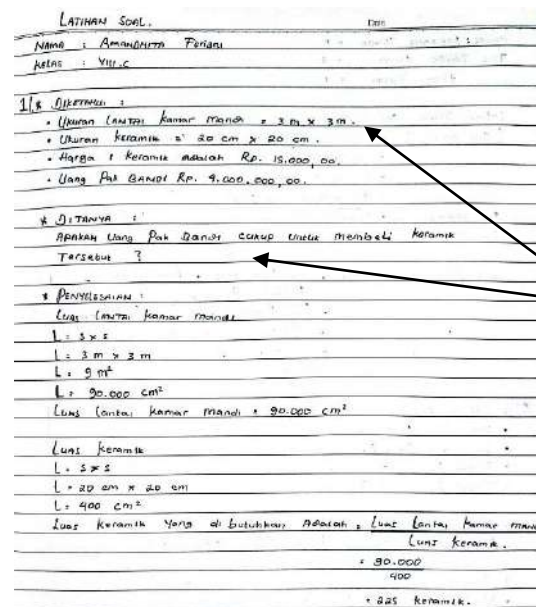 LATIHAN SOAL.
NAMA : Feriani
KELAS : VIII.C
1/* DIKETAHUI :
• Ukuran LANTAI kamar mandi = 3 m x 3 m.
• Ukuran keramik = 20 cm x 20 cm.
• Harga 1 keramik adalah Rp. 15.000,00.
• Uang Pak BANDI Rp. 4.000.000,00.
* DITANYA :
APAKAH Uang Pak Bandi cukup untuk membeli keramik
Tersebut ?
* PENYELESAIAN :
Luas LANTAI kamar mandi
L = s x s
L = 3 m x 3 m
L = 9 m²
L = 90.000 cm²
Luas lantai kamar mandi = 90.000 cm²
Luas keramik
L = s x s
L = 20 cm x 20 cm
L = 400 cm²
Luas keramik yang di butuhkan Adalah = Luas Lantai kamar
Luas keramik.
= 90.000
400
= 225 keramik.